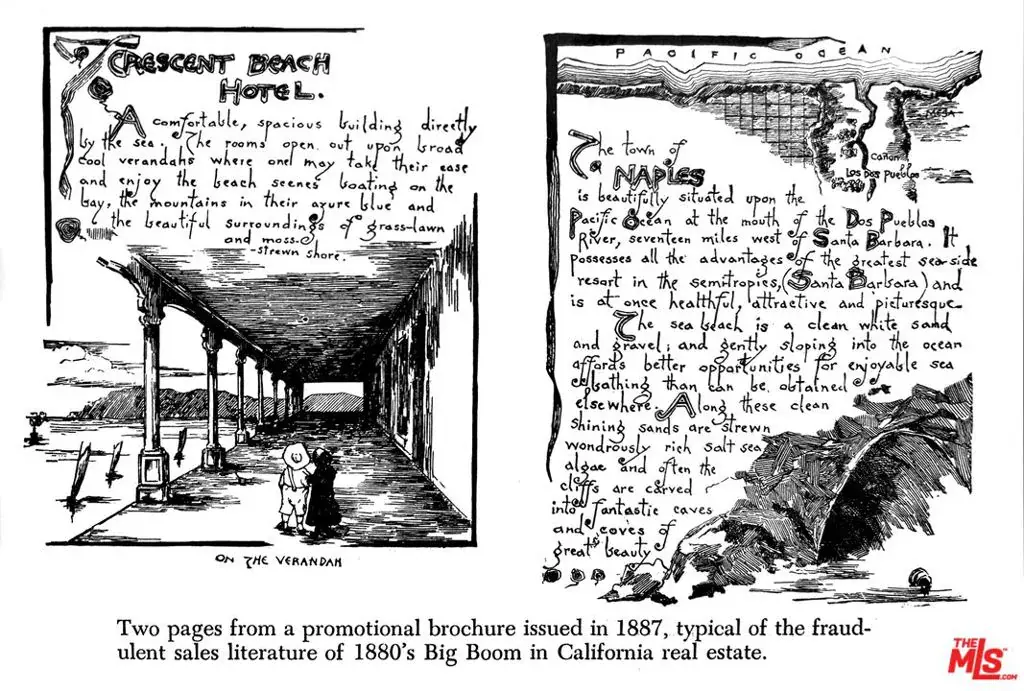 CRESCENT BEACH
HOTEL.
A comfortable, spacious building directly
by the sea. The rooms open out upon broad
cool verandahs where one may take their ease
and enjoy the beach scenes boating on the
bay, the mountains in their azure blue and
the beautiful surroundings of grass-lawn
and moss-
-strewn shore.
ON THE VERANDAH
PACIFIC OCEAN
MESA
CAÑON
LOS DOS PUEBLOS
The town of
NAPLES
is beautifully situated upon the
Pacific Ocean at the mouth of the Dos Pueblos
River, seventeen miles west of Santa Barbara. It
possesses all the advantages of the greatest sea-side
resort in the semitropics, (Santa Barbara) and
is at once healthful, attractive and picturesque
The sea beach is a clean white sand
and gravel; and gently sloping into the ocean
affords better opportunities for enjoyable sea
bathing than can be obtained
elsewhere. Along these clean
shining sands are strewn
wondrously rich salt sea
algae and often the
cliffs are carved
into fantastic caves
and coves of
great beauty
Two pages from a promotional brochure issued in 1887, typical of the fraud-
ulent sales literature of 1880's Big Boom in California real estate.
THE
MLS™
.COM